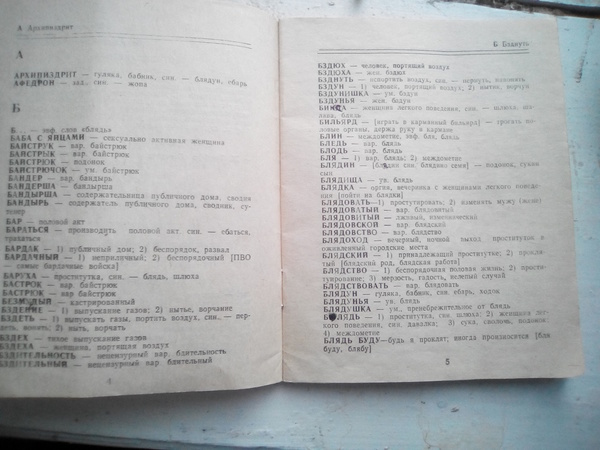 А Архипиздрит
А
АРХИПИЗДРИТ — гуляка, бабник, син. — блядун, ебарь
АФЕДРОН — зад, син. — жопа
Б
Б... — эвф. слова «блядь»
БАБА С ЯЙЦАМИ — сексуально активная женщина
БАЙСТРУК — вар. байстрюк
БАЙСТРЫК — вар. байстрюк
БАЙСТРЮК — подонок
БАЙСТРЮЧОК — ум. байстрюк
БАНДЕР — вар. бандырь
БАНДЕРША — бандырша
БАНДЫРША — содержательница публичного дома, сводня
БАНДЫРЬ — содержатель публичного дома, сводник, су-
тенер
БАР — половой акт
БАРАТЬСЯ — производить половой акт, син. — ебаться,
трахаться
БАРДАК — 1) публичный дом; 2) беспорядок, развал
БАРДАЧНЫЙ — 1) неприличный; 2) беспорядочный [ПВО
— самые бардачные войска]
БАРУХА — проститутка, син. — блядь, шлюха
БАСТРОК — вар. байстрюк
БАСТРЮК — вар. байстрюк
БЕЗМУДЫЙ — кастрированный
БЗДЕНИЕ — 1) выпускание газов; 2) нытье, ворчание
БЗДЕТЬ — 1) выпускать газы, портить воздух, син. — пер-
деть, вонять; 2) ныть, ворчать
БЗДЕХ — тихое выпускание газов
БЗДЕХА — женщина, портящая воздух
БЗДИТЕЛЬНОСТЬ — нецензурный вар. бдительность
БЗДИТЕЛЬНЫЙ — нецензурный вар. бдительный
4
Б Бзднуть
БЗДЮХ — человек, портящий воздух
БЗДЮХА — жен. бздюх
БЗДНУТЬ — испортить воздух, син. — пернуть, навонять
БЗДУН — 1) человек, портящий воздух; 2) нытик, ворчун
БЗДУНИШКА — ум. бздун
БЗДУНЬЯ — жен. бздун
— женщина легкого поведения, син. — шлюха, шо-
лава, блядь
БИЛЬЯРД — [играть в карманный бильярд] — трогать по-
ловые органы, держа руку в кармане
БЛИН — междометие, эвф. бля, блядь
БЛЕДЬ — вар. блядь
БЛОДЬ — вар. блядь
БЛЯ — 1) вар. блядь; 2) междометие
БЛЯДИН — [блядин син. блядино семя] — подонок, сукин
сын
БЛЯДИЩА — ув. блядь
БЛЯДКА — оргия, вечеринка с женщинами легкого поведе-
ния [пойти на блядки]
БЛЯДОВАТЬ—1) проститутировать; 2) изменять мужу (жене)
БЛЯДОВАТЫЙ — вар. блядовитый
БЛЯДОВИТЫЙ — лживый,
БЛЯДОВСКОЙ — вар. блядский
БЛЯДОВСТВО — вар. блядство
БЛЯДОХОД — вечерний, ночной выход проституток в
оживленный городские места
БЛЯДСКИЙ — 1) принадлежащий проститутке; 2) прокля-
тый [блядский род, блядская работа]
БЛЯДСТВО — 1) беспорядочная половая жизнь; 2) прости-
туирование; 3) мерзость, гадость, нелепый случай
БЛЯДСТВОВАТЬ — вар. блядовать
БЛЯДУН — гуляка, бабник, син. ебарь, ходок
БЛЯДУНЬЯ — ув. блядь
БЛЯДУШКА — ум., пренебрежительное от блядь
БЛЯДЬ — 1) проститутка, син. шлюха; 2) женщина лег-
кого поведения, син. давалка; 3) сука, сволочь, подонок
4) междометие
БЛЯДЬ БУДУ—будь я проклят, иногда произносится [бля
буду, блябу]
5